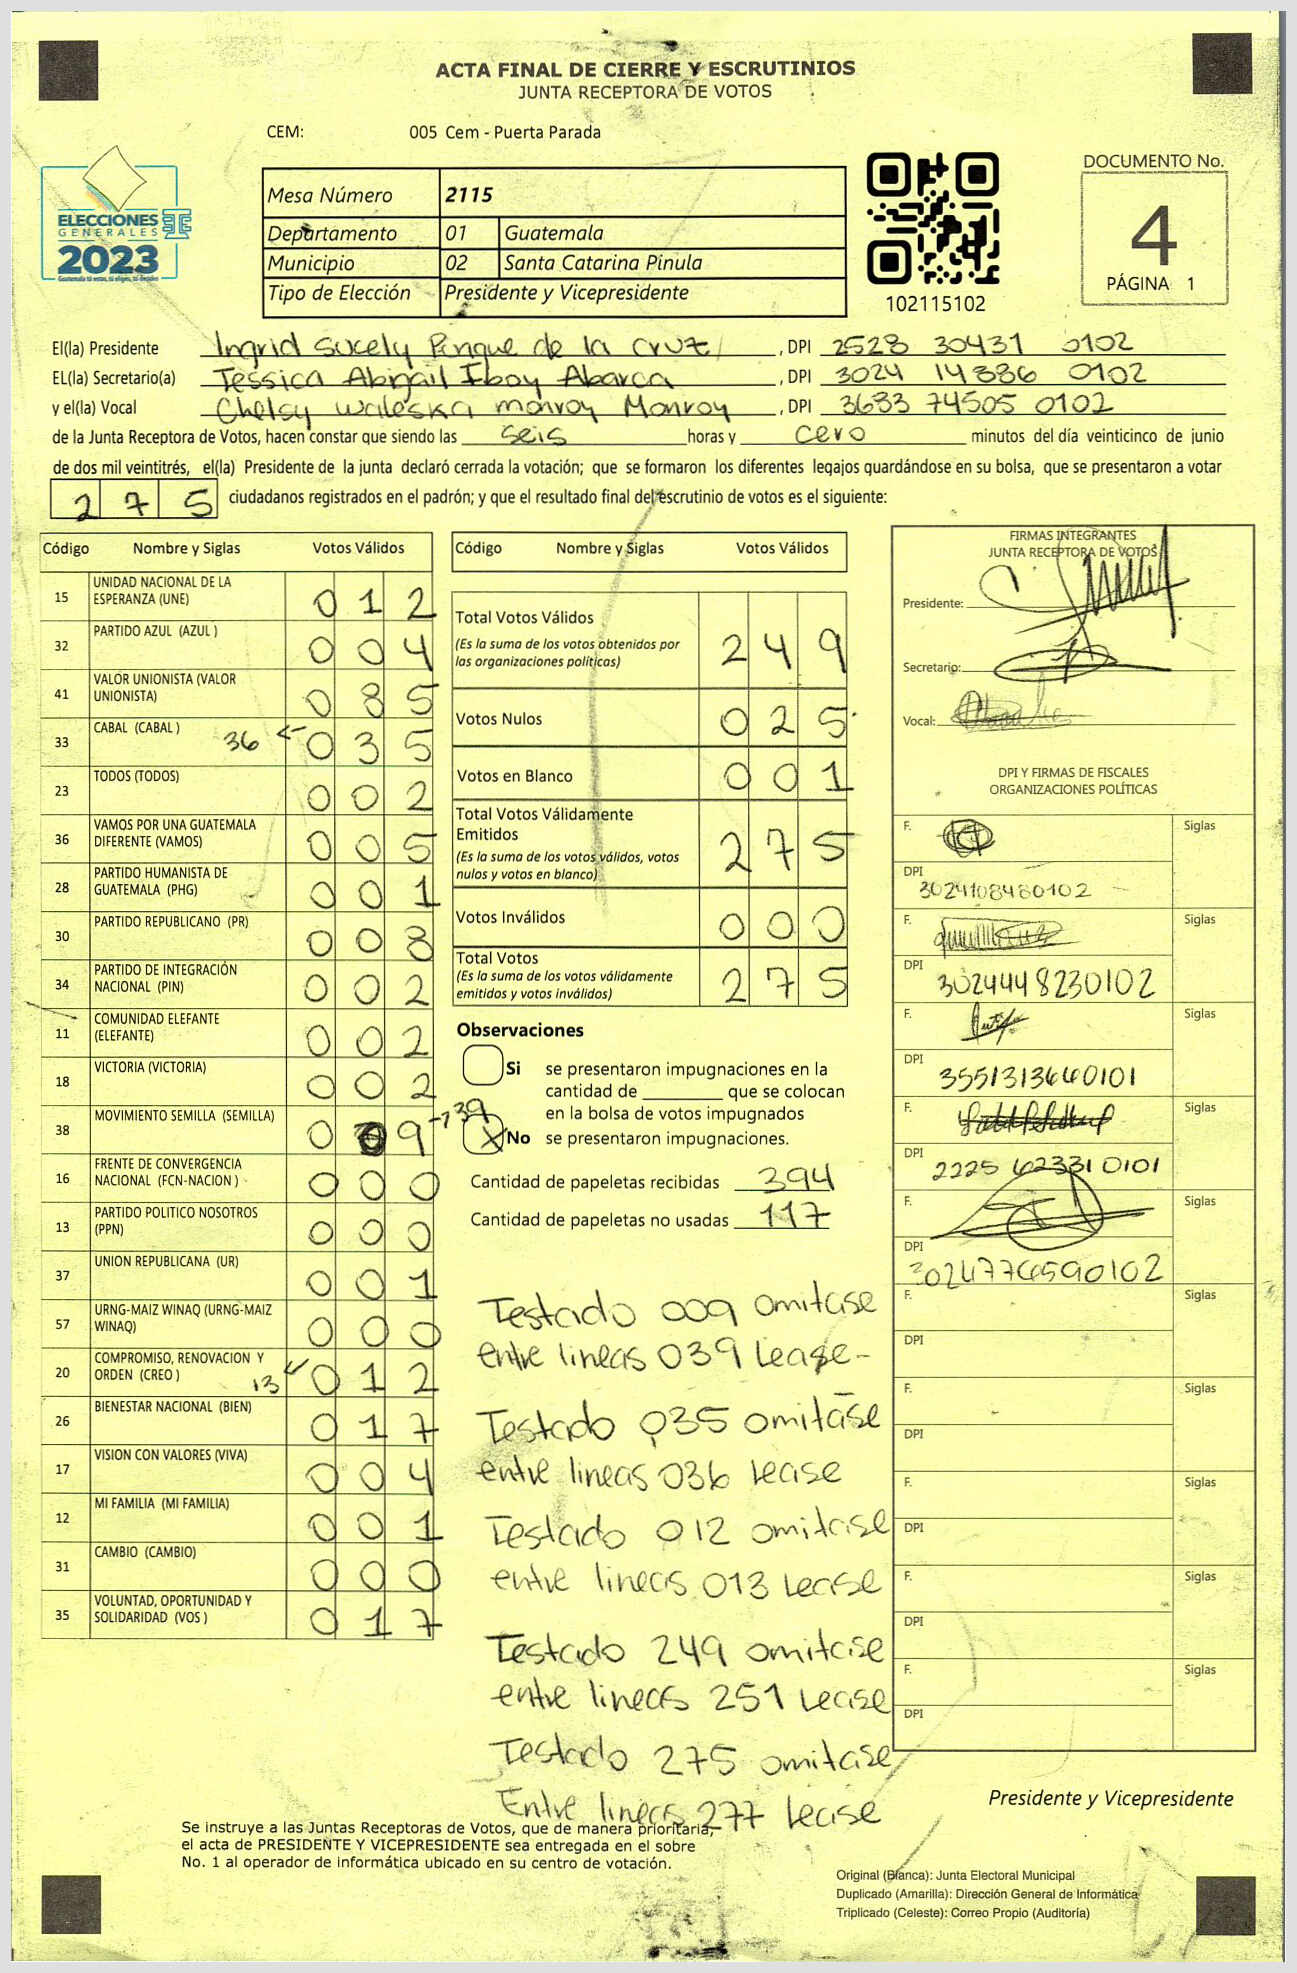 ACTA FINAL DE CIERRE Y ESCRUTINIOS
JUNTA RECEPTORA DE VOTOS
CEM: 005 Cem - Puerta Parada
ELECCIONES
GENERALES
2023
Mesa Número 2115
Departamento 01 Guatemala
Municipio 02 Santa Catarina Pinula
Tipo de Elección Presidente y Vicepresidente
102115102
DOCUMENTO No.
4
PÁGINA 1
El(la) Presidente Ingrid Sucely Pinque de la Cruz, DPI 2528 30431 0102
EL(la) Secretario(a) Jessica Abigail Iboy Abarca, DPI 3024 14886 0102
y el(la) Vocal Chelsy Waleska Monroy Monroy, DPI 3633 74505 0102
de la Junta Receptora de Votos, hacen constar que siendo las seis horas y cero minutos del día veinticinco de junio
de dos mil veintitrés, el(la) Presidente de la junta declaró cerrada la votación; que se formaron los diferentes legajos guardándose en su bolsa, que se presentaron a votar
275 ciudadanos registrados en el padrón; y que el resultado final del escrutinio de votos es el siguiente:
Código Nombre y Siglas Votos Válidos
15 UNIDAD NACIONAL DE LA ESPERANZA (UNE) 012
32 PARTIDO AZUL (AZUL ) 004
41 VALOR UNIONISTA (VALOR UNIONISTA) 085
33 CABAL (CABAL ) 36 <- 035
23 TODOS (TODOS) 002
36 VAMOS POR UNA GUATEMALA DIFERENTE (VAMOS) 005
28 PARTIDO HUMANISTA DE GUATEMALA (PHG) 001
30 PARTIDO REPUBLICANO (PR) 008
34 PARTIDO DE INTEGRACIÓN NACIONAL (PIN) 002
11 COMUNIDAD ELEFANTE (ELEFANTE) 002
18 VICTORIA (VICTORIA) 002
38 MOVIMIENTO SEMILLA (SEMILLA) 009 -> 39
16 FRENTE DE CONVERGENCIA NACIONAL (FCN-NACION ) 000
13 PARTIDO POLITICO NOSOTROS (PPN) 000
37 UNION REPUBLICANA (UR) 001
57 URNG-MAIZ WINAQ (URNG-MAIZ WINAQ) 000
20 COMPROMISO, RENOVACION Y ORDEN (CREO ) 13 <- 012
26 BIENESTAR NACIONAL (BIEN) 017
17 VISION CON VALORES (VIVA) 004
12 MI FAMILIA (MI FAMILIA) 001
31 CAMBIO (CAMBIO) 000
35 VOLUNTAD, OPORTUNIDAD Y SOLIDARIDAD (VOS ) 017
Código Nombre y Siglas Votos Válidos
Total Votos Válidos 249
(Es la suma de los votos obtenidos por
las organizaciones politicas)
Votos Nulos 025
Votos en Blanco 001
Total Votos Válidamente
Emitidos 275
(Es la suma de los votos válidos, votos
nulos y votos en blanco)
Votos Inválidos 000
Total Votos 275
(Es la suma de los votos válidamente
emitidos y votos inválidos)
Observaciones
Si se presentaron impugnaciones en la
cantidad de ________ que se colocan
en la bolsa de votos impugnados
X No se presentaron impugnaciones.
Cantidad de papeletas recibidas 394
Cantidad de papeletas no usadas 117
Testado 009 omitase
entre lineas 039 Lease-
Testado 035 omitase
entre lineas 036 Lease
Testado 012 omitase
entre lineas 013 Lease
Testado 249 omitase
entre lineas 251 Lease
Testado 275 omitase
Entre lineas 277 Lease
FIRMAS INTEGRANTES
JUNTA RECEPTORA DE VOTOS
Presidente:
Secretario:
Vocal:
DPI Y FIRMAS DE FISCALES
ORGANIZACIONES POLÍTICAS
F. Siglas
DPI 3024108480102
F. Siglas
DPI 3024448230102
F. Siglas
DPI 3551313640101
F. Siglas
DPI 2225 62331 0101
F. Siglas
DPI 3024776590102
F. Siglas
DPI
F. Siglas
DPI
F. Siglas
DPI
F. Siglas
DPI
F. Siglas
DPI
Presidente y Vicepresidente
Se instruye a las Juntas Receptoras de Votos, que de manera prioritaria,
el acta de PRESIDENTE Y VICEPRESIDENTE sea entregada en el sobre
No. 1 al operador de informática ubicado en su centro de votación.
Original (Blanca): Junta Electoral Municipal
Duplicado (Amarilla): Dirección General de Informática
Triplicado (Celeste): Correo Propio (Auditoría)